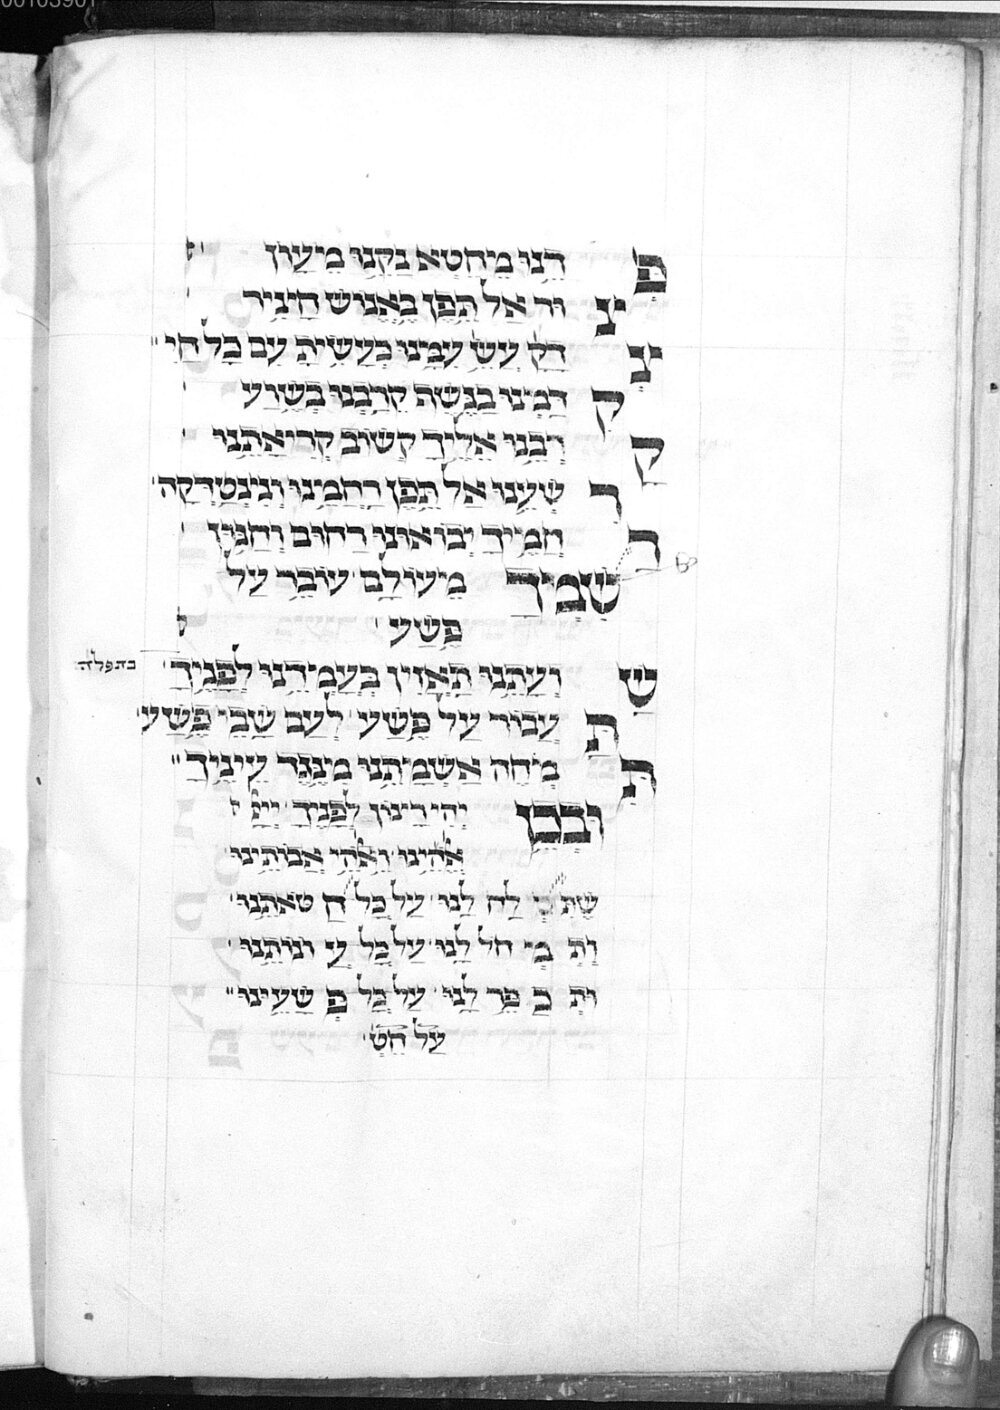 פְּ דֵנוּ מֵחֵטְא נַקֵּנוּ מֵעָוֹן
צ וּר אַל תֵּפֶן בֶּאֱנוֹשׁ חִיגֵּיר
צֶ דֶק עֲשֵׂ עִמָּנוּ כְּעָשִׂיתָ עִם כָּל חַי
ק דְּמֵנוּ בְגֶשֶׁת קָרְבֵנוּ בְּשֶׁוַע
קָ רְבֵנוּ אֵלֶיךָ קְשׁוֹב קְרִיאָתֵנוּ
ר שְׁעֵנוּ אַל תֵּפֶן רַחֲמֵנוּ וְנִינְצְדָקָה
רַ חֲמֶיךָ יְבוֹאוּנוּ רַחוּם וְחַנּוּן
שִׁמְךָ מֵעוֹלָם עוֹבֵר עַל
פֶּשַׁע
שַׁ וְעָתֵנוּ תַאֲזִין בְּעָמְדֵנוּ לְפָנֶיךָ בתפלה
תַּ עֲבוֹר עַל פֶּשַׁע לְעַם שָׁבֵי פֶשַׁע
תִּ מְחֶה אַשְׁמָתֵנוּ מִנֶּגֶד עֵינֶיךָ
וּבְכֵן יְהִי רָצוֹן לְפָנֶיךָ יְיָ
אֱלֹהֵינוּ וֵאלֹהֵי אֲבוֹתֵינוּ
שֶׁתִּ סְ לַח לָנוּ עַל כָּל חַ טֹּאתֵנוּ
וְתִ מְ חַל לָנוּ עַל כָּל עֲ וֹנוֹתֵנוּ
וּתְ כַ פֵּר לָנוּ עַל כָּל פְּ שָׁעֵינוּ
עַל חֵטְ